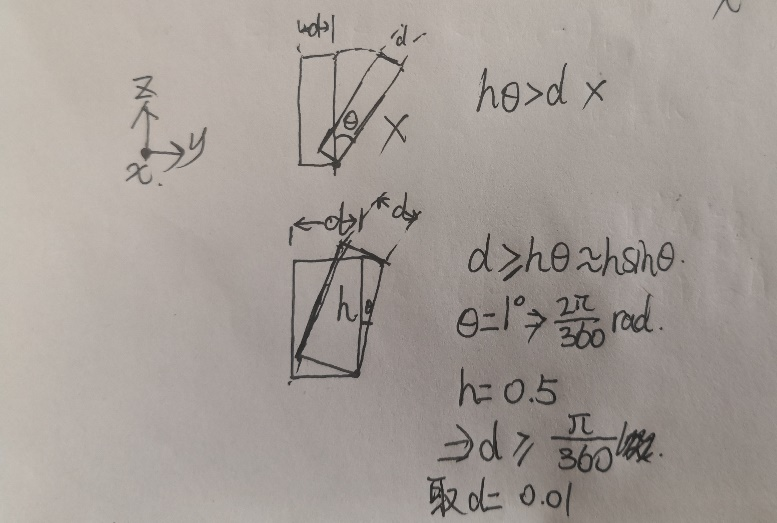 d d
hθ>d ×
z
y
x
θ
×
d d
h θ
d≥hθ≈hsinθ.
θ=1°⇒2π/360 rad.
h=0.5
⇒d≥π/360
取d=0.01